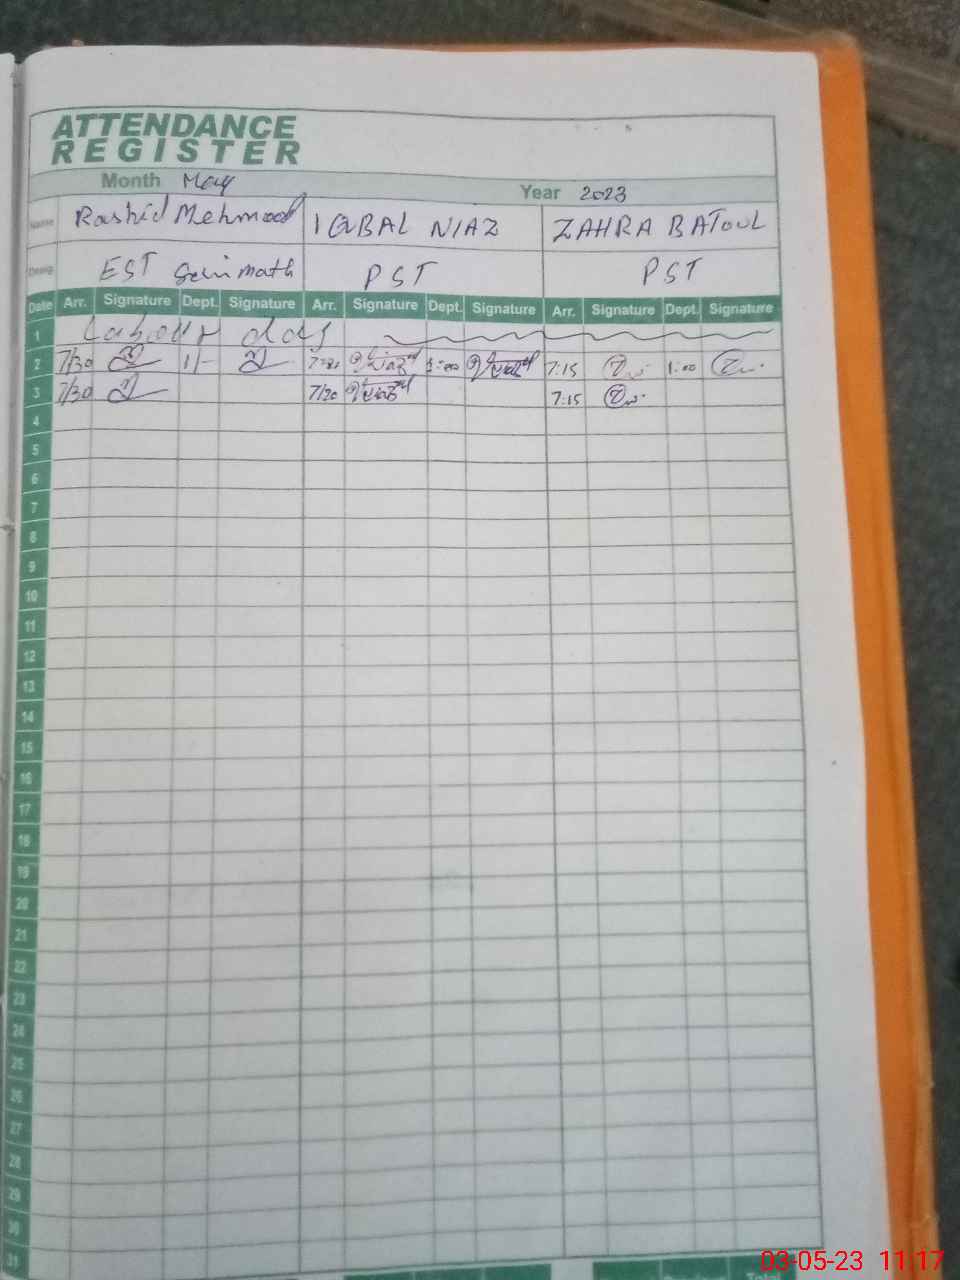 ATTENDANCE
REGISTER
Month May
Year 2023
Name Rashid Mehmood IQBAL NIAZ ZAHRA BATOUL
Desig EST math PST PST
Date Arr. Signature Dept. Signature Arr. Signature Dept. Signature Arr. Signature Dept. Signature
1 Labour day
2 7/30 1/- 7:15 1:00
3 7/30 7/20 7:15
4
5
6
7
8
9
10
11
12
13
14
15
16
17
18
19
20
21
22
23
24
25
26
27
28
29
30
31
03-05-23 11:17